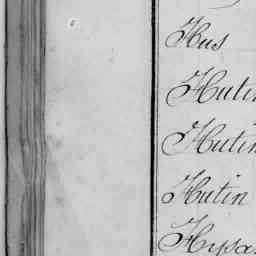 Hus
Hutin
Hutin
Hutin